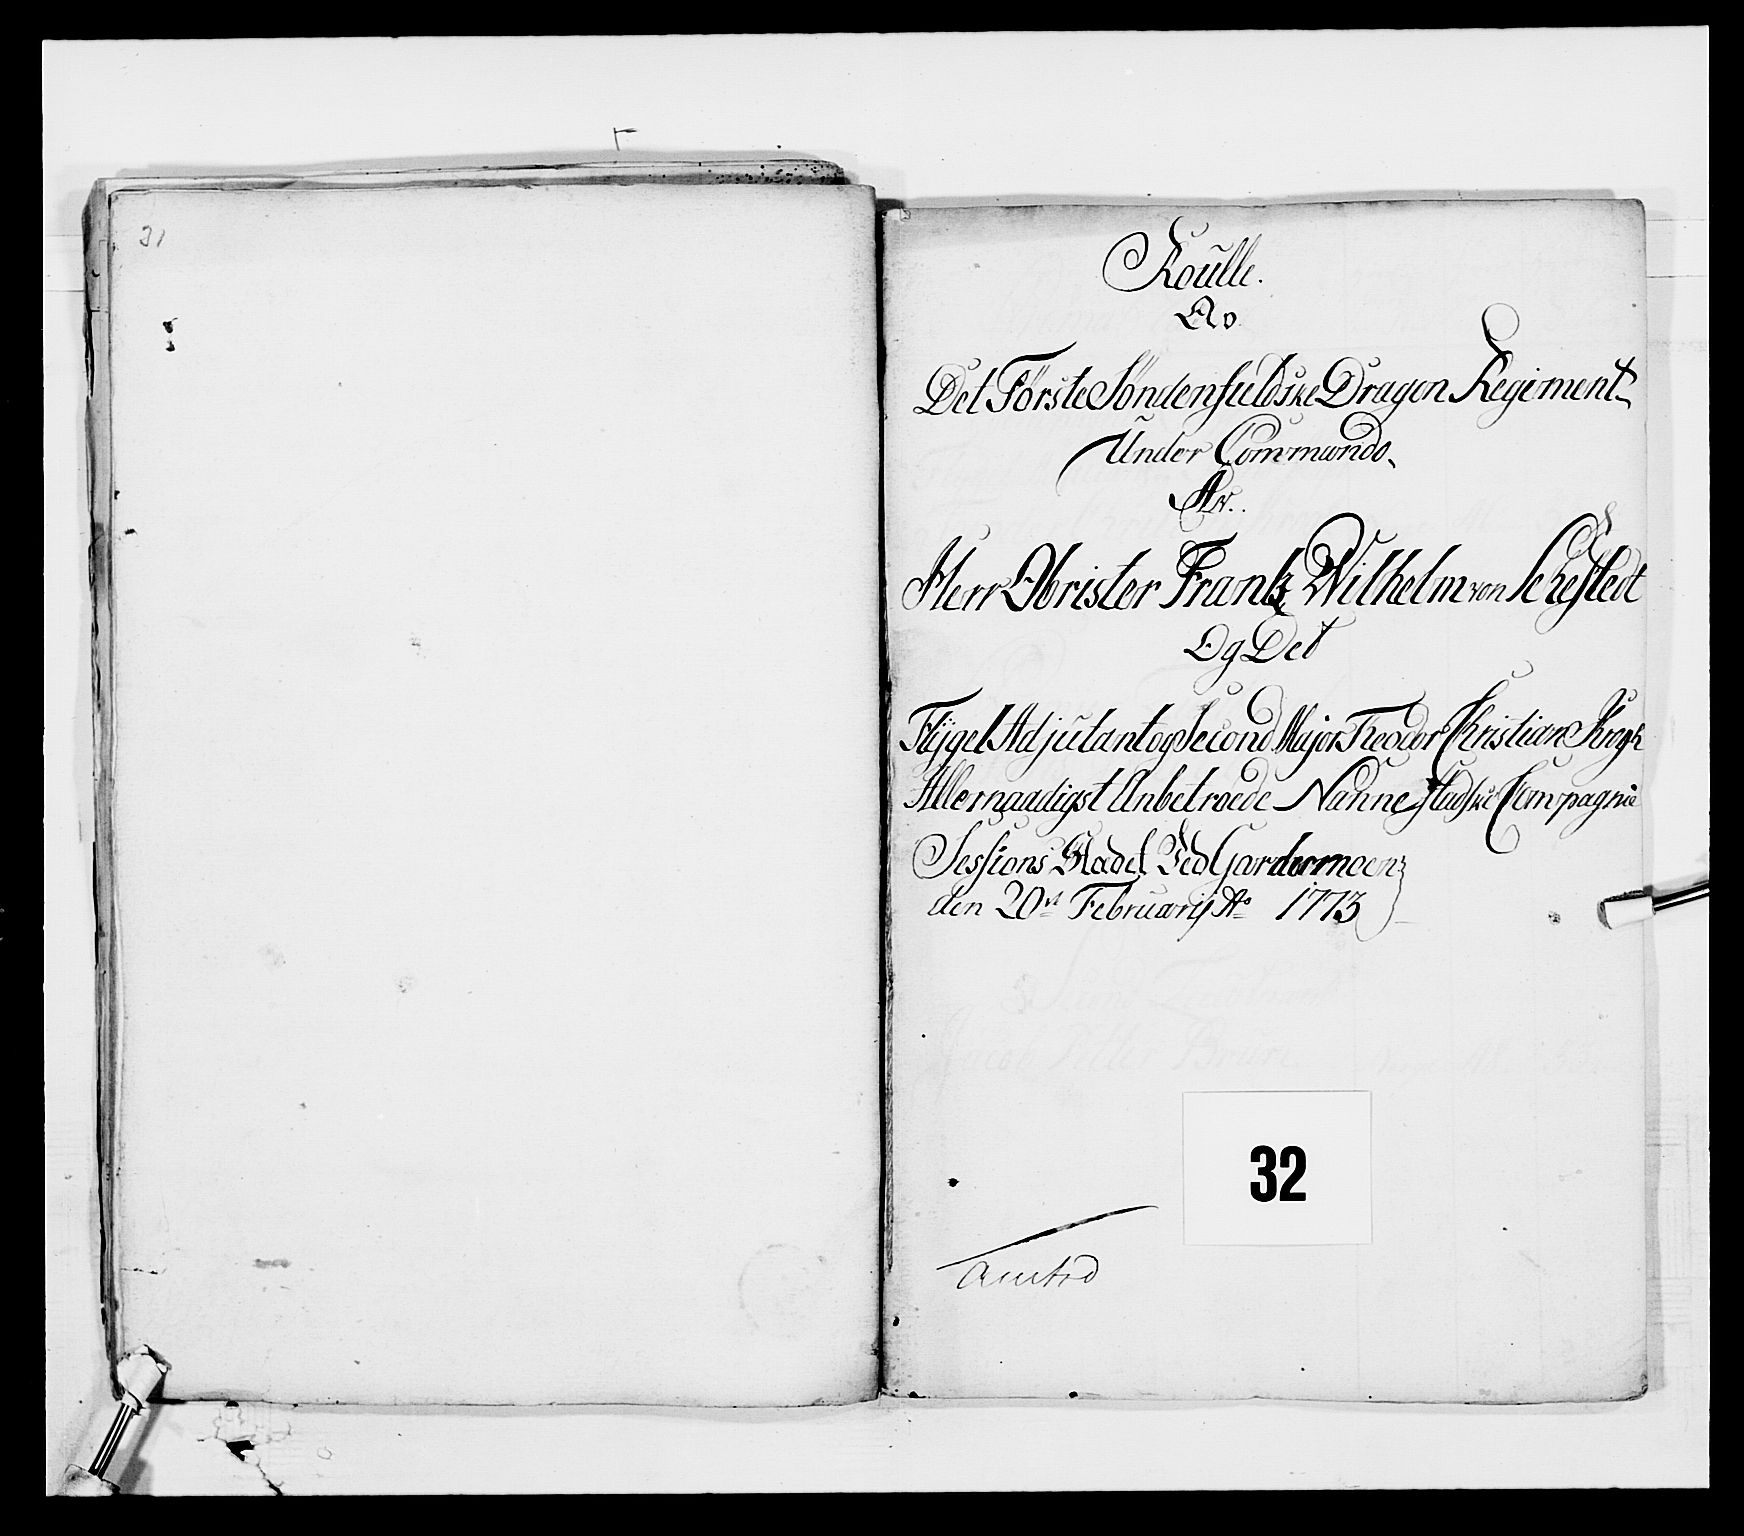 31
Roulle.
Av
Det Första Søndenfieldske Dragon Regiment
Under Commando.
Av.
Herr Obrister Frantz Wilhelm von Sehestedt
Og Det
Flÿgel Adjutant og Second Major Theodor Christian Krogh
Allernaadigst Anbetroede Nannestadske Compagnie
Sessions Stadet Ved Gardermoen
den 20de Februarij Ao 1773
32